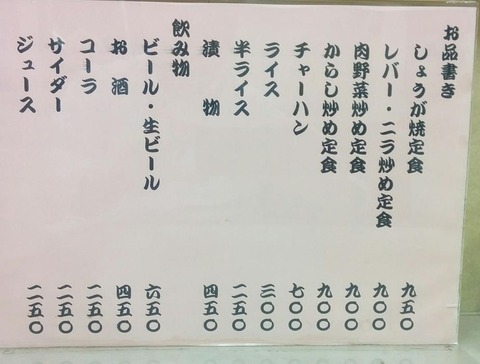 お品書き
しょうが焼定食 九五〇
レバー・ニラ炒め定食 九〇〇
肉野菜炒め定食 九〇〇
からし炒め定食 九〇〇
チャーハン 七〇〇
ライス 三〇〇
半ライス 二五〇
漬物 四五〇
飲み物
ビール・生ビール 六五〇
お酒 四五〇
コーラ 二五〇
サイダー 二五〇
ジュース 二五〇